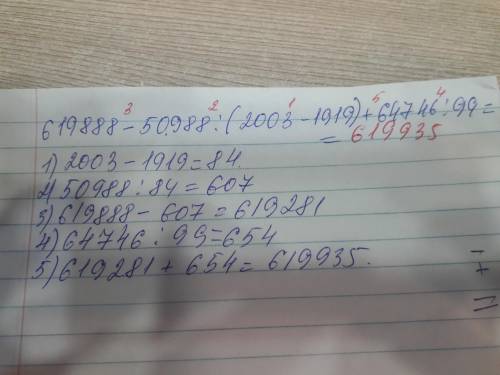 3 2 1 5 4
619888-50988:(2003-1919)+64746:99=
=619935
1) 2003-1919=84.
2) 50988:84=607
3) 619888-607=619281
4) 64746:99=654
5) 619281+654=619935.